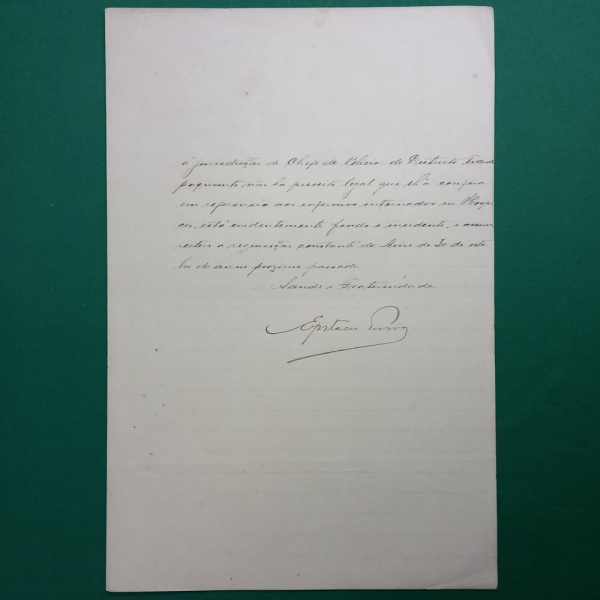 á jurisdicção do Chefe de Policia do Districto Federal
porquanto, não ha preceito legal que lh'a confira
em referencia aos enfermos internados no Hospi
cio, está evidentemente findo o incidente, e assim
reitero a requisição constante do Aviso de 30 de outu
bro do anno proximo passado
Saude e Fraternidade
Epitacio Pessoa